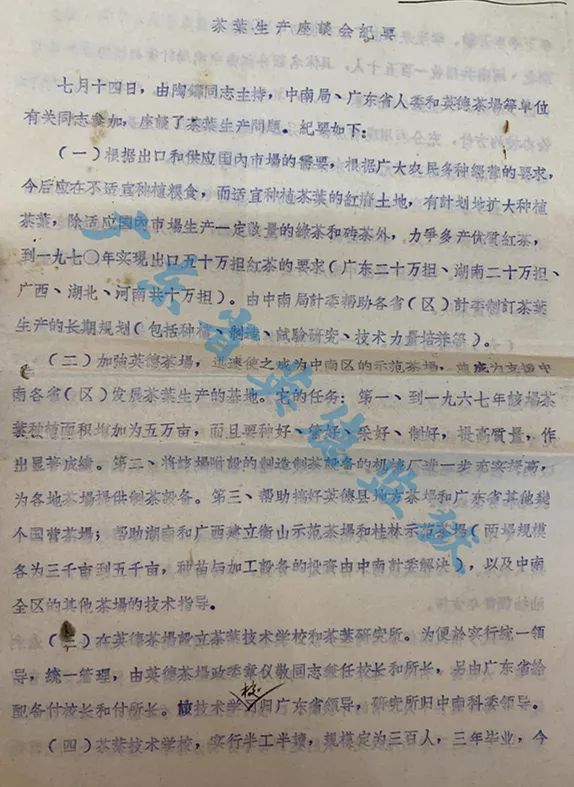 茶葉生产座談会紀要
七月十四日，由陶鑄同志主持，中南局、广东省人委和英德茶場等单位
有关同志参加，座談了茶葉生产問題。紀要如下：
（一）根据出口和供应国內市場的需要，根据广大农民多种經营的要求，
今后应在不适宜种植粮食，而适宜种植茶葉的紅壤土地，有計划地扩大种植
茶葉，除适应国內市場生产一定数量的綠茶和砖茶外，力爭多产优质紅茶，
到一九七〇年实現出口五十万担紅茶的要求（广东二十万担、湖南二十万担、
广西、湖北、河南共十万担）。由中南局計委帮助各省（区）計委制訂茶葉
生产的长期规划（包括种植、制造、試驗研究、技术力量培养等）。
（二）加強英德茶場，迅速使之成为中南区的示范茶場，成为支援中
南各省（区）发展茶葉生产的基地。它的任务：第一、到一九六七年該場茶
葉种植面积增加为五万亩，而且要种好、管好、采好、制好，提高质量，作
出显著成績。第二、将該場附設的制造制茶設备的机械厂进一步充实提高，
为各地茶場提供制茶設备。第三、帮助搞好英德县地方茶場和广东省其他幾
个国营茶場；帮助湖南和广西建立衡山示范茶場和桂林示范茶場（两場规模
各为三千亩到五千亩，种苗与加工設备的投資由中南計委解决），以及中南
全区的其他茶場的技术指导。
（三）在英德茶場設立茶葉技术学校和茶葉研究所。为便於实行統一領
导，統一管理，由英德茶場政委章仪敬同志兼任校长和所长，另由广东省給
配备付校长和付所长。技术学校归广东省領导，研究所归中南科委領导。
（四）茶葉技术学校，实行半工半讀，规模定为三百人，三年毕业，今
广东省英德监狱